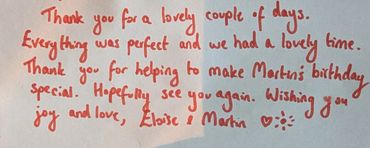 Thank you for a lovely couple of days.
Everything was perfect and we had a lovely time.
Thank you for helping to make Martin's birthday
special. Hopefully see you again. Wishing you
joy and love, Eloise & Martin ♡☀